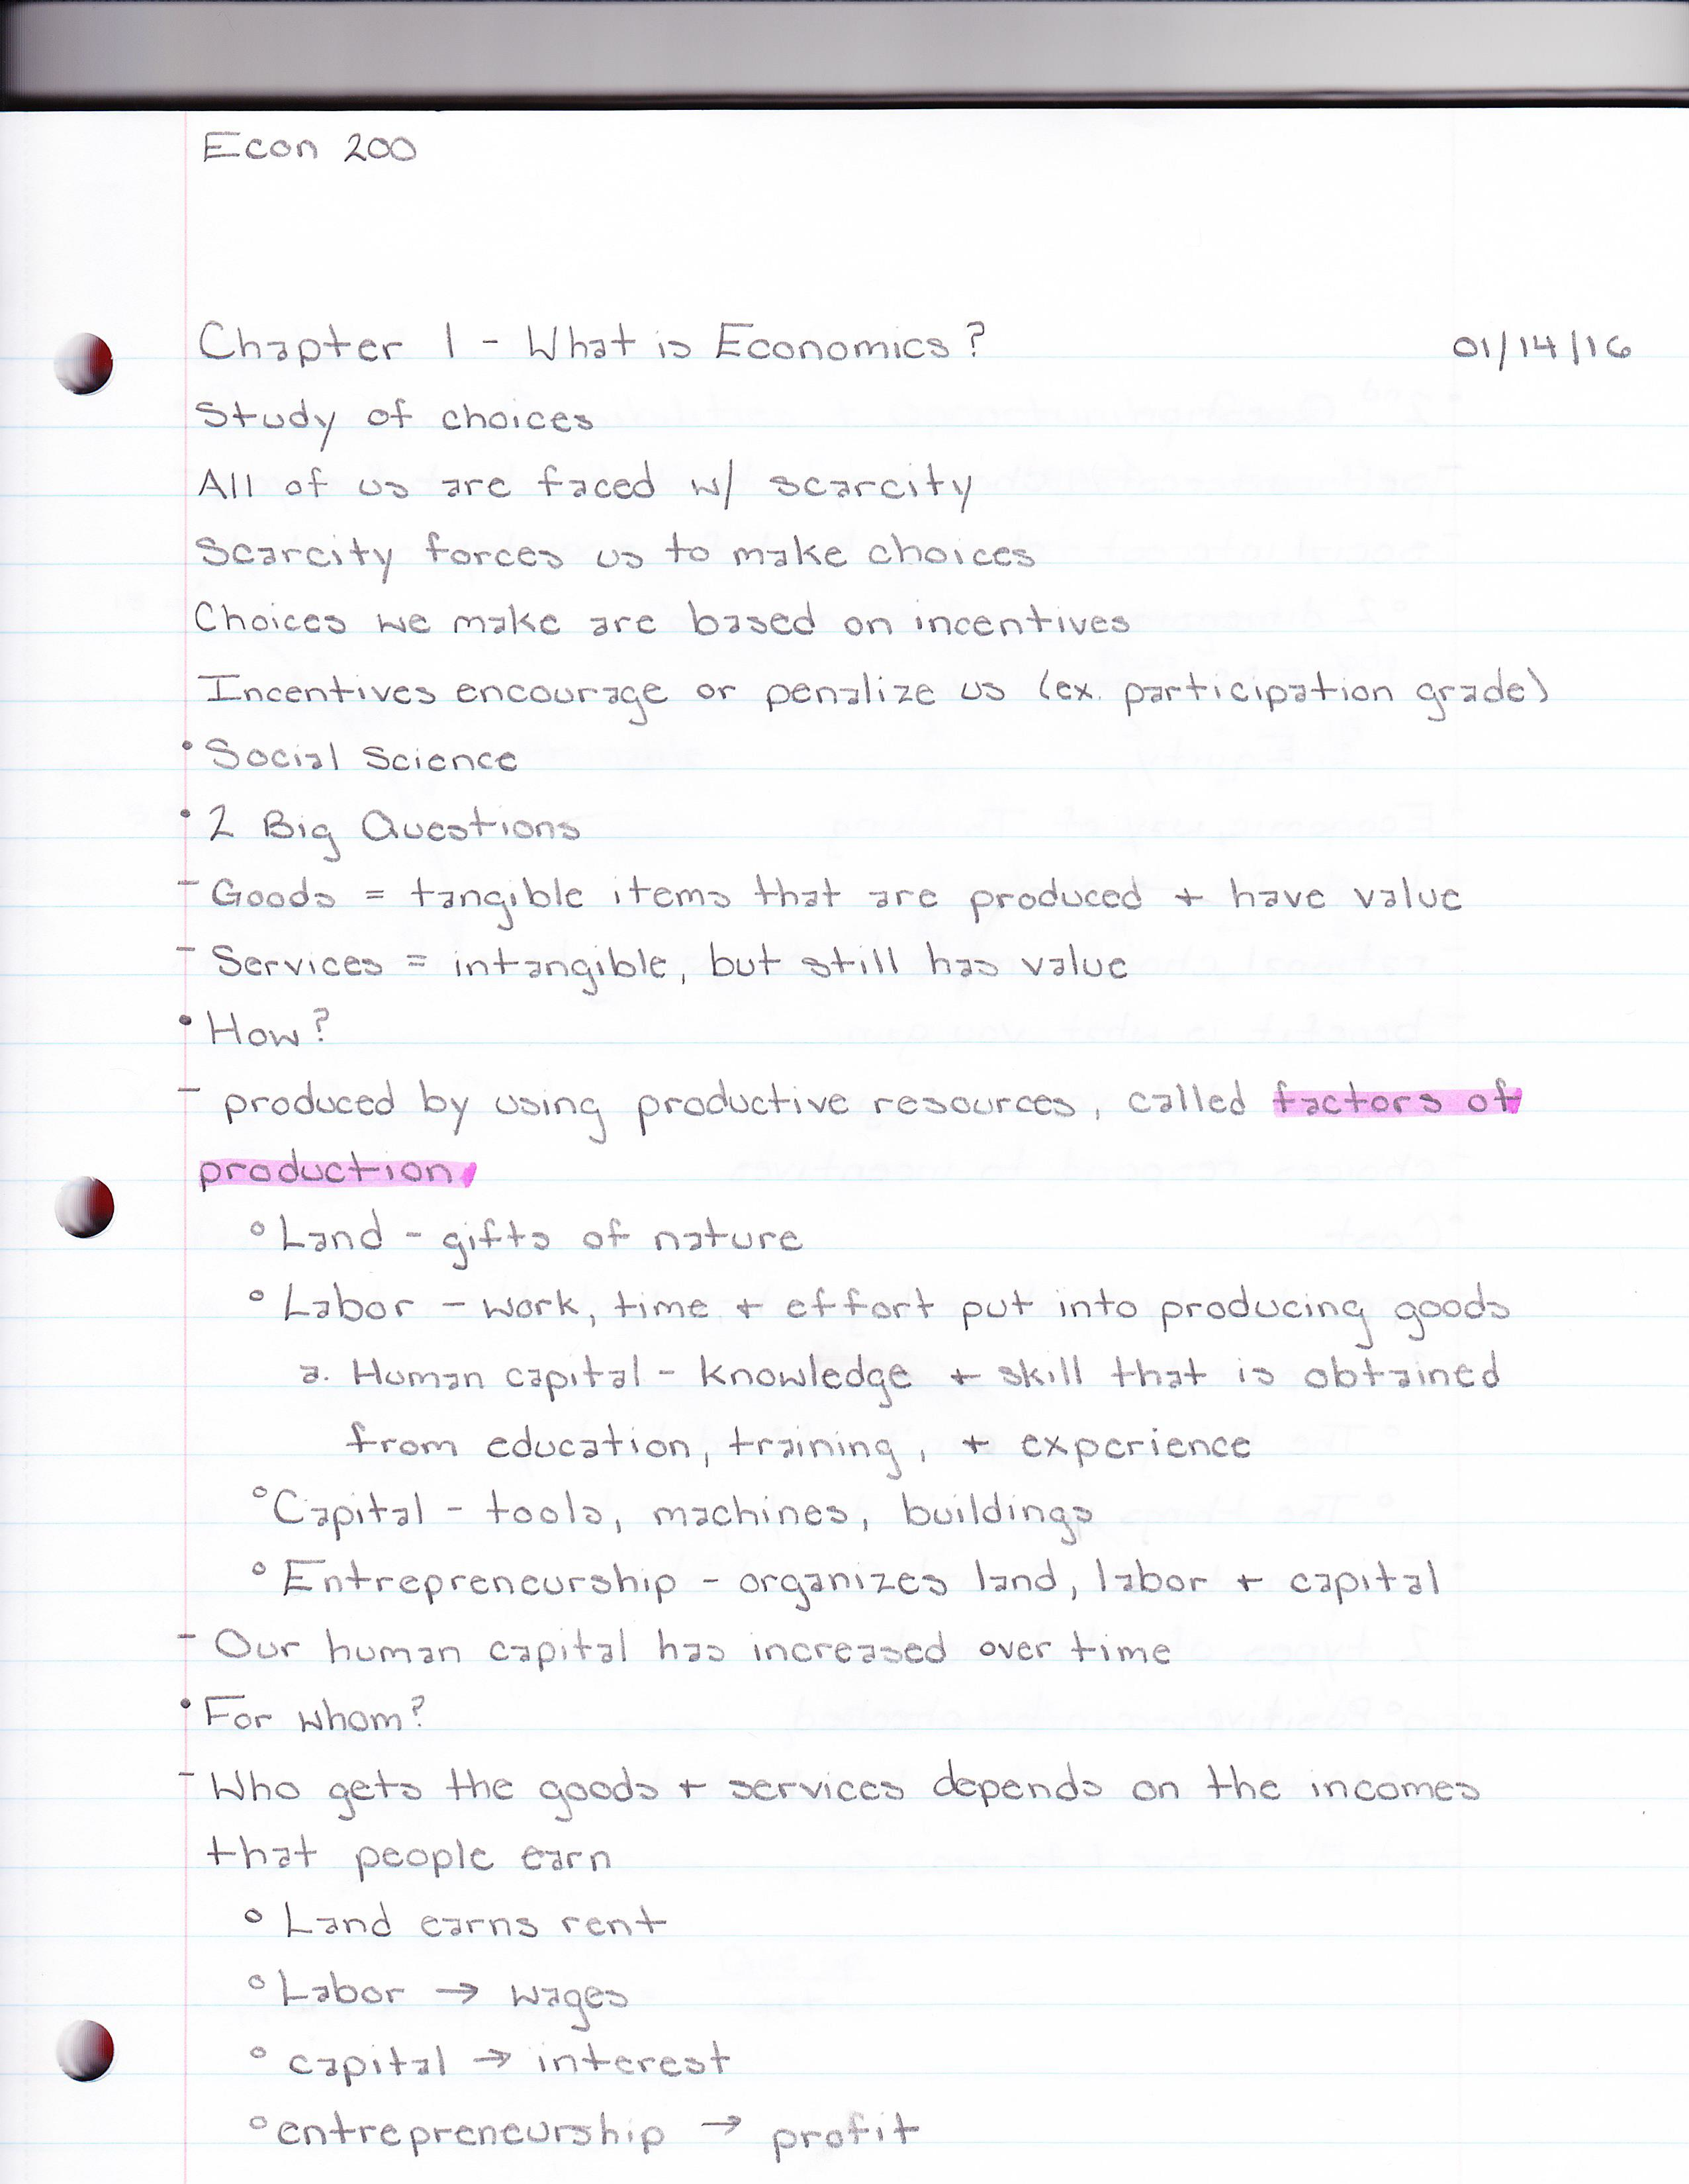 Econ 200
Chapter 1 - What is Economics? 01/14/16
Study of choices
All of us are faced w/ scarcity
Scarcity forces us to make choices
Choices we make are based on incentives
Incentives encourage or penalize us (ex. participation grade)
• Social Science
• 2 Big Questions
- Goods = tangible items that are produced + have value
- Services = intangible, but still has value
• How?
- produced by using productive resources, called factors of
production
° Land - gifts of nature
° Labor - work, time + effort put into producing goods
a. Human capital - knowledge + skill that is obtained
from education, training, + experience
° Capital - tools, machines, buildings
° Entrepreneurship - organizes land, labor + capital
- Our human capital has increased over time
• For whom?
- Who gets the goods + services depends on the incomes
that people earn
° Land earns rent
° Labor → wages
° capital → interest
° entrepreneurship → profit